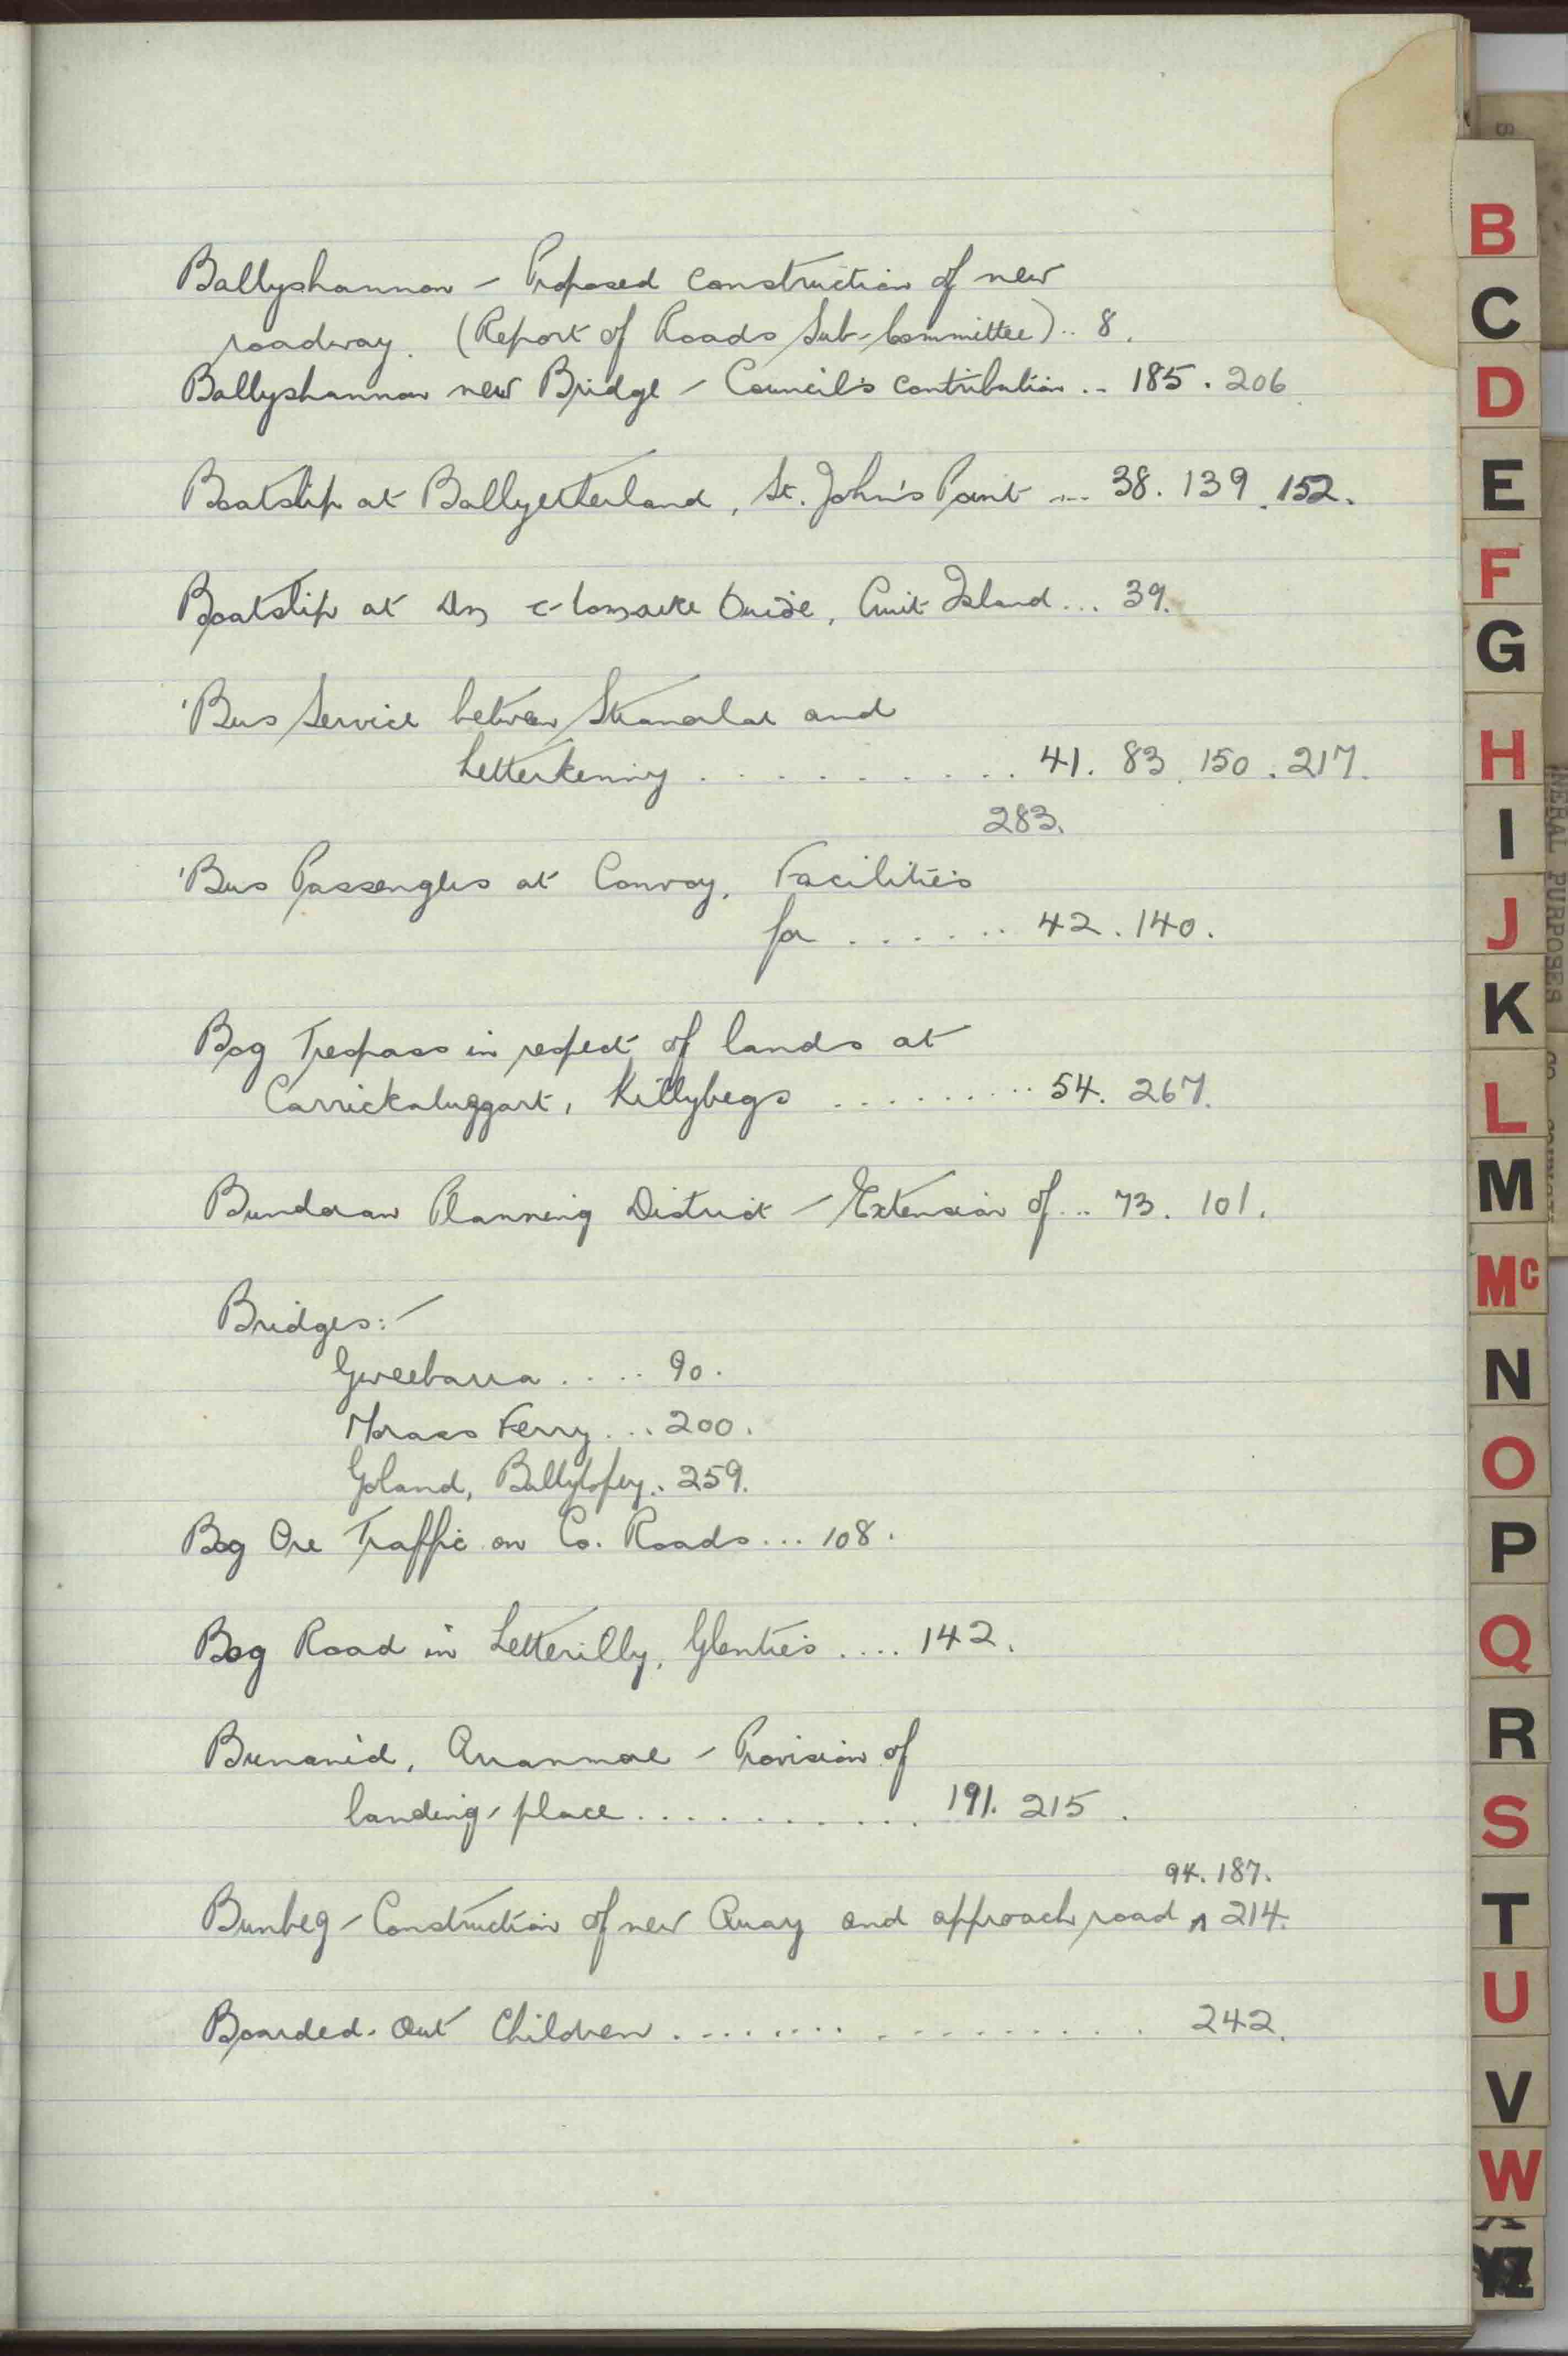 Ballyshannon - Proposed construction of new
roadway. (Report of Roads Sub-Committee).. 8.
Ballyshannon new Bridge - Council's contribution .. 185. 206.
Boatslip at Ballyetherland, St. John's Point ... 38. 139. 152.
Boatslip at An Buide, Cruit Island... 39.
'Bus Service between Stranorlar and
Letterkenny .......... 41. 83. 150. 217.
283.
'Bus Passengers at Convoy, Facilities
for ....... 42. 140.
Bog Trespass in respect of lands at
Carrickaluggart, Killybegs .......... 54. 267.
Bundoran Planning District - Extension of... 73. 101.
Bridges:-
Gweebarra ..... 90.
Morass Ferry... 200.
Goland, Ballybofey.. 259.
Bog Ore Traffic on Co. Roads... 108.
Bog Road in Letterilly, Glenties .... 142.
Bunanid, Arranmore - Provision of
landing-place........... 191. 215.
94. 187.
Bunbeg - Construction of new Quay and approach road ^ 214.
Boarded-Out Children .................. 242.
B
C
D
E
F
G
H
I
J
K
L
M
Mc
N
O
P
Q
R
S
T
U
V
W
YZ